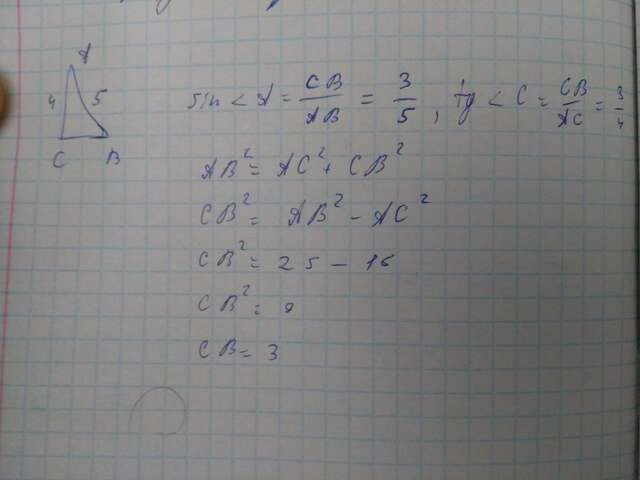 A
4 5
C B
sin < A = CB/AB = 3/5, tg < C = CB/AC = 3/4
AB² = AC² + CB²
CB² = AB² - AC²
CB² = 25 - 16
CB² = 9
CB = 3